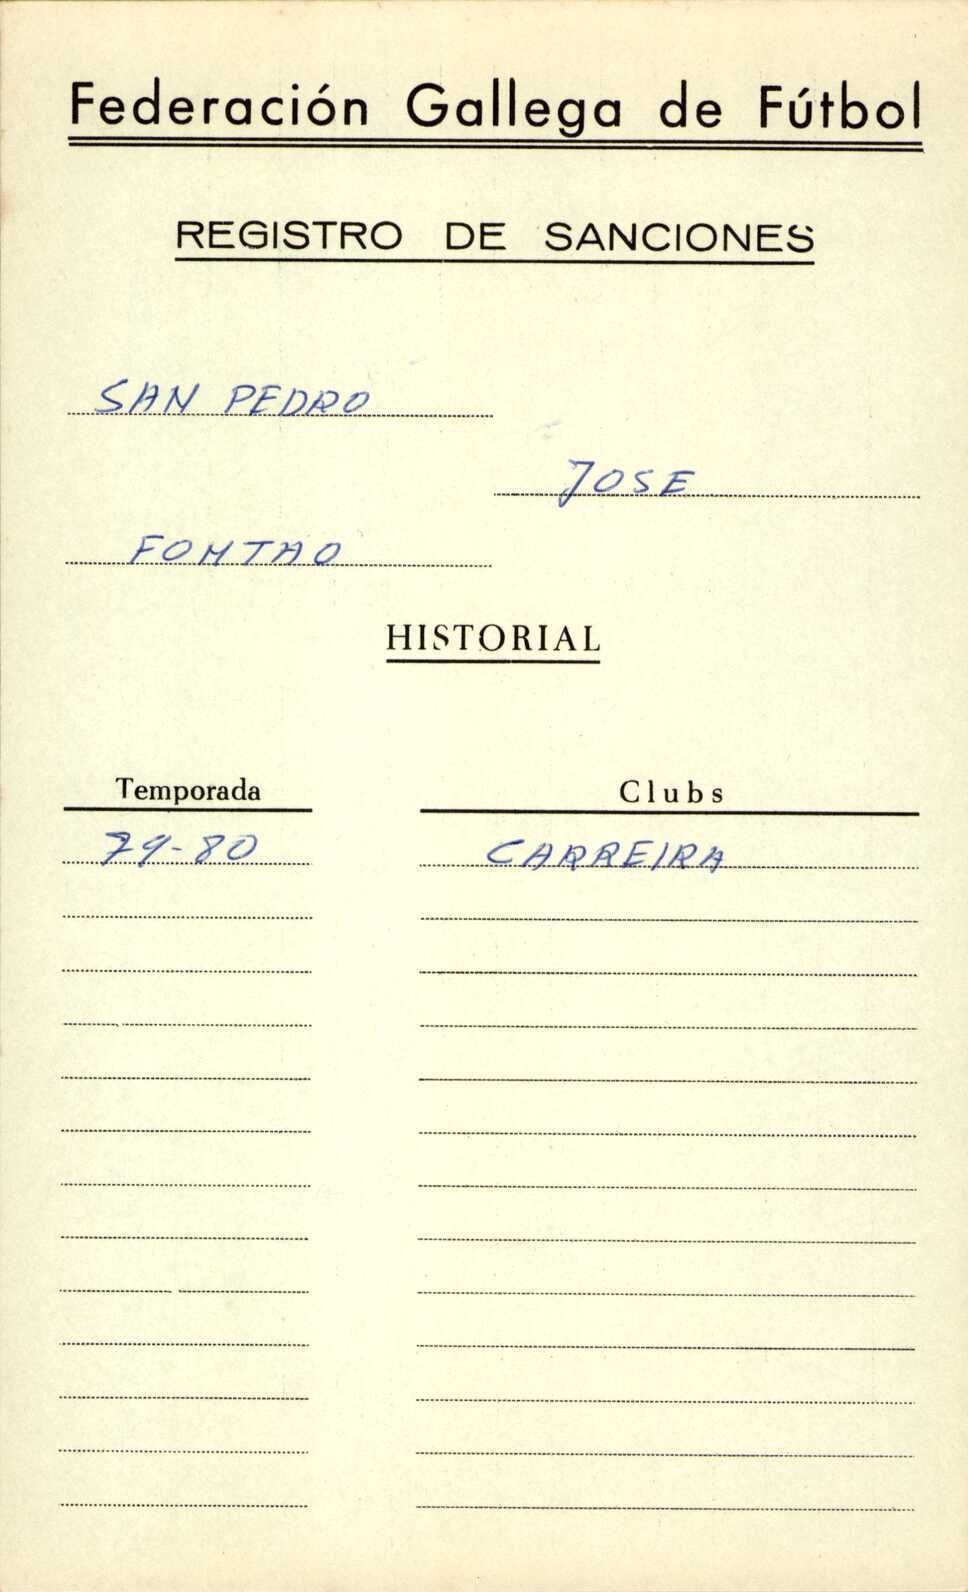 Federación Gallega de Fútbol
REGISTRO DE SANCIONES
SAN PEDRO
JOSE
FOMTAO
HISTORIAL
Temporada Clubs
79-80 CARREIRA